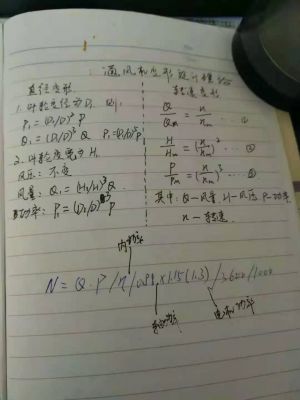 通风机变形设计理论
直径变形
1. 叶轮直径为D₁ 则:
P₁=(D₁/D)² P
Q₁=(D₁/D)³ Q P₁=(D₁/D)⁵P
2. 叶轮宽度为H₁
风压: 不变
风量: Q₁=(H₁/H)³Q
功率: P₁=(D₁/D)³P
转速变形
Q/Qm = n/nm …①
H/Hm = (n/nm)² …②
P/Pm = (n/nm)³ …③
其中: Q—风量 H—风压 P—功率
n—转速
内功率
N = Q·P/η/0.98×1.15(1.3)/3600/1000
电机功率